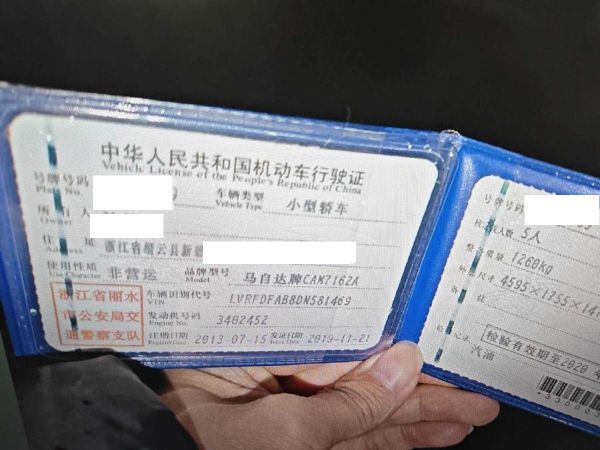 中华人民共和国机动车行驶证
Vehicle License of the People's Republic of China
号牌号码
Plate No.
车辆类型 小型轿车
Vehicle Type
所有人
Owner
住址 浙江省缙云县新碧
Address
使用性质 非营运 品牌型号 马自达牌CAM7162A
Use Character Model
浙江省丽水
市公安局交
通警察支队
车辆识别代号 LVRFDFAB8DN581469
VIN
发动机号码 3402452
Engine No.
注册日期 2013-07-15 发证日期 2019-11-21
Register Date Issue Date
号牌号码
核定载人数 5人
整备质量 1260kg
外廓尺寸 4595×1755×14
备注
检验有效期至2020年
检验记录
汽油